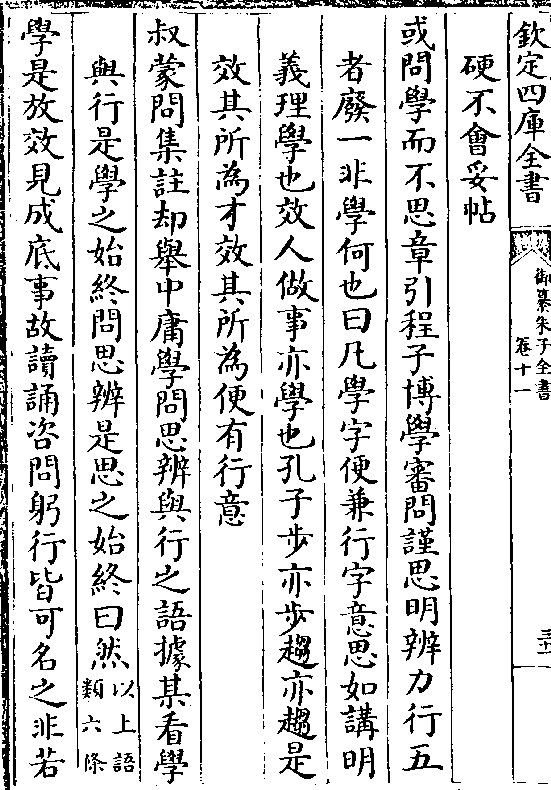 欽定四庫全書
御纂朱子全書
卷十一
三十一
硬不會妥帖
或問學而不思章引程子博學審問謹思明辨力行五
者廢一非學何也曰凡學字便兼行字意思如講明
義理學也效人做事亦學也孔子步亦步趨亦趨是
效其所為才效其所為便有行意
叔蒙問集註却舉中庸學問思辨與行之語據某看學
與行是學之始終問思辨是思之始終曰然以上語類六條
學是放效見成底事故讀誦咨問躬行皆可名之非若